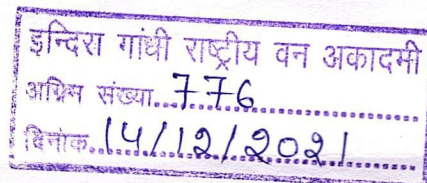 इन्दिरा गांधी राष्ट्रीय वन अकादमी
अग्रिम संख्या...776
दिनांक...14/12/2021